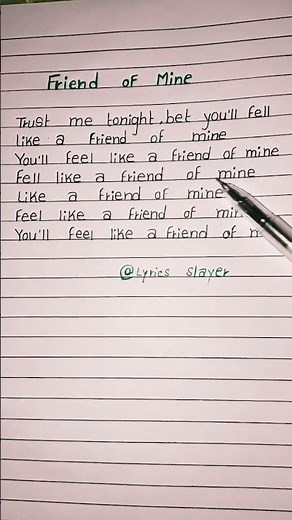 Friend of Mine
Trust me tonight, bet you'll fell
like a friend of mine
You'll feel like a friend of mine
Fell like a friend of mine
Like a friend of mine
Feel like a friend of min
You'll feel like a friend of
@Lyrics slayer